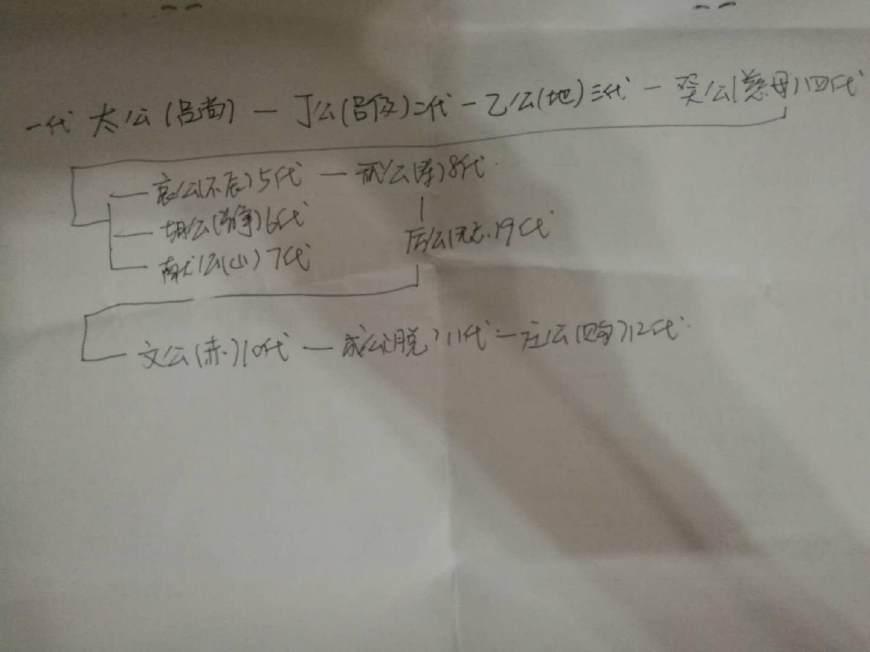 一代 太公(吕尚) — 丁公(吕伋)二代 — 乙公(地)三代 — 癸公(慈母)四代
哀公(不辰)5代 — 武公(寿)8代
胡公(静)6代
厉公(无忌)9代
献公(山)7代
文公(赤)10代 — 成公(脱)11代 — 庄公(购)12代